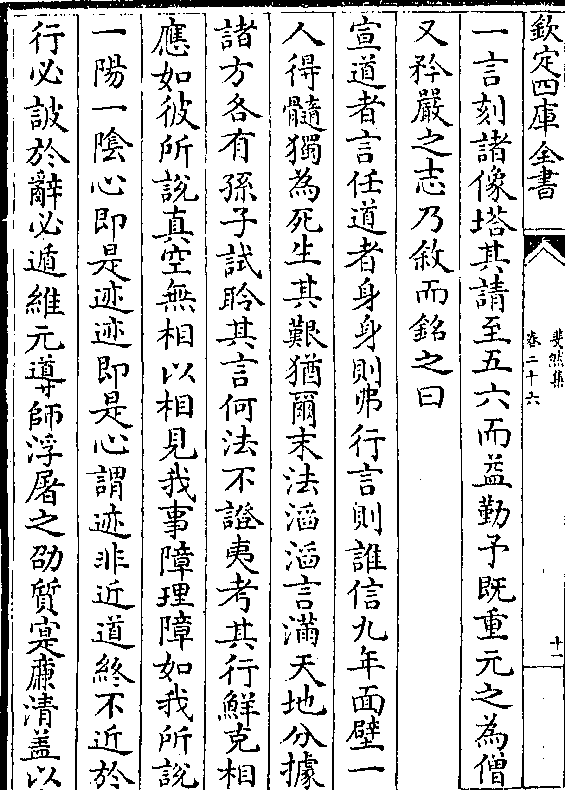 欽定四庫全書
斐然集
卷二十六
十一
一言刻諸像塔其請至五六而益勤予既重元之為僧
又矜嚴之志乃敘而銘之曰
宣道者言任道者身身則弗行言則誰信九年面壁一
人得髓獨為死生其艱猶爾末法滔滔言滿天地分據
諸方各有孫子試聆其言何法不證夷考其行鮮克相
應如彼所說真空無相以相見我事障理障如我所說
一陽一陰心即是迹迹即是心謂迹非近道終不近於
行必詖於辭必遁維元導師浮屠之劭質寔亷清盖以